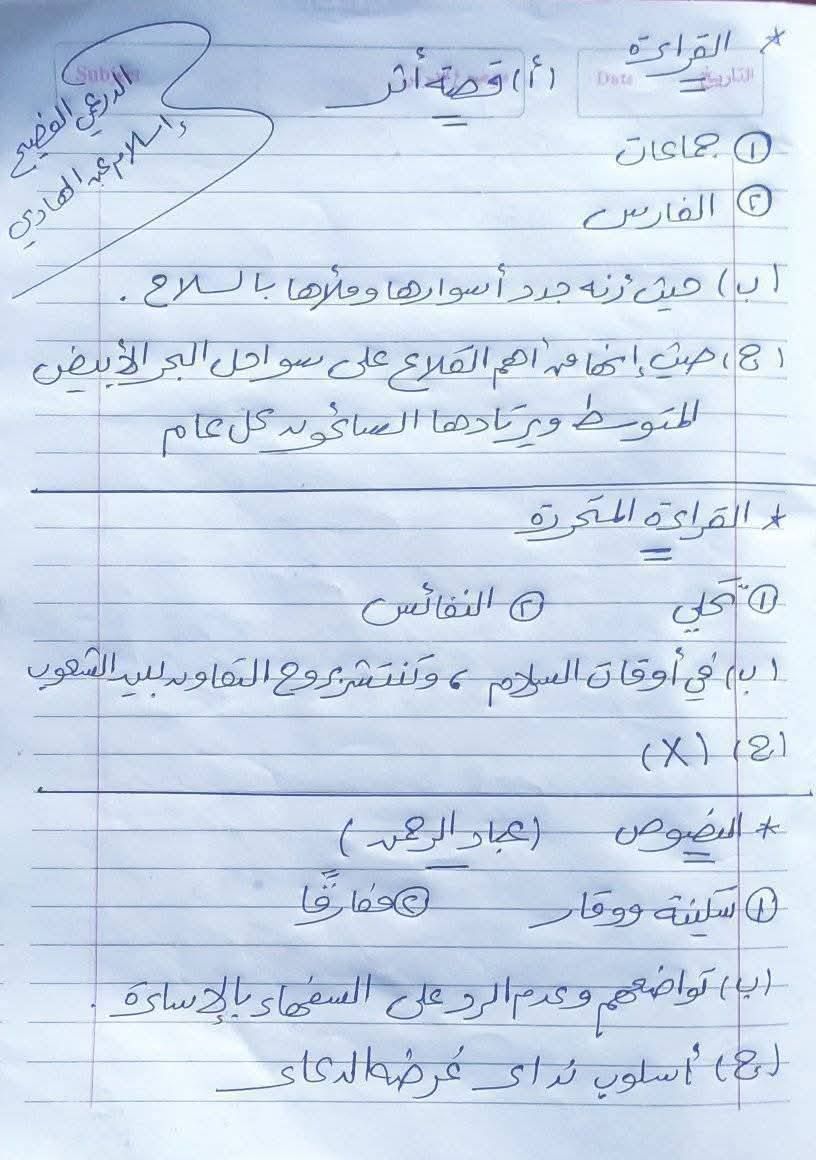 * القراءة
(أ) قصة أثر
Subject
Date
التاريخ
الدرعمي الفصيح
إسلام عبد الهادي
① جماعات
② الفارس
(ب) حيث إنه جدد أسوارها وملأها بالسلاح .
(ج) حيث إنها من أهم القلاع على سواحل البحر الأبيض
المتوسط ويرتادها السائحون كل عام
* القراءة المتحررة
① تحلي ② النفائس
(ب) في أوقات السلام ، وتنتشر روح التعاون بين الشعوب
(ج) (X)
* النصوص (عباد الرحمن)
① سكينة ووقار ② مفارقًا
(ب) تواضعهم وعدم الرد على السفهاء بالإساءة .
(ج) أسلوب نداء غرضه الدعاء